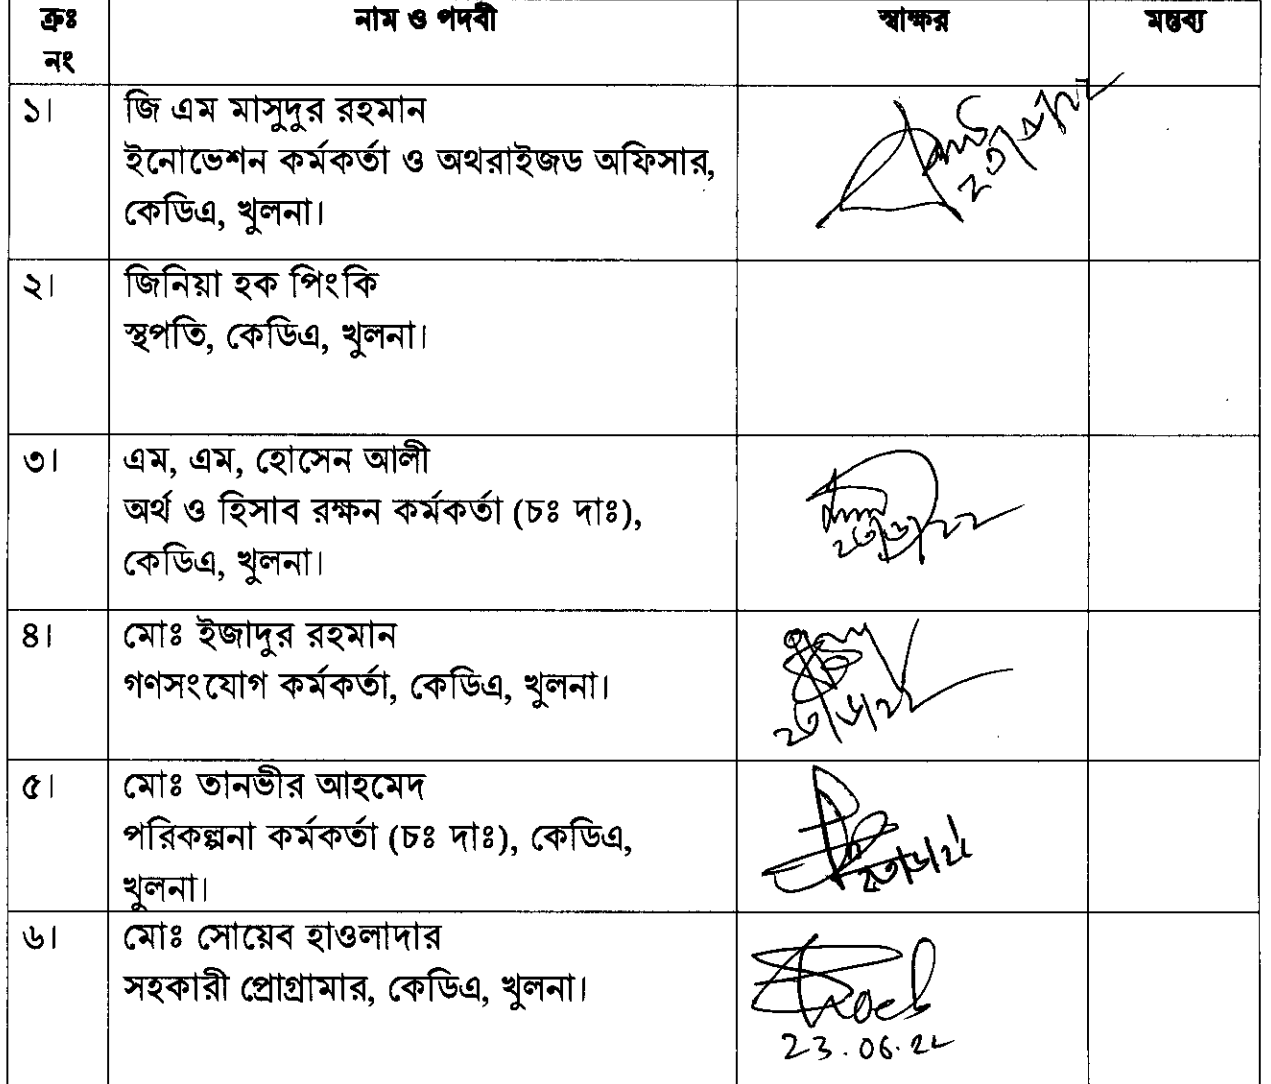 ক্রঃ নং নাম ও পদবী স্বাক্ষর মন্তব্য
১। জি এম মাসুদুর রহমান
ইনোভেশন কর্মকর্তা ও অথরাইজড অফিসার,
কেডিএ, খুলনা।
২। জিনিয়া হক পিংকি
স্থপতি, কেডিএ, খুলনা।
৩। এম, এম, হোসেন আলী
অর্থ ও হিসাব রক্ষন কর্মকর্তা (চঃ দাঃ),
কেডিএ, খুলনা।
২৩/৬/২২
৪। মোঃ ইজাদুর রহমান
গণসংযোগ কর্মকর্তা, কেডিএ, খুলনা।
২৩/৬/২২
৫। মোঃ তানভীর আহমেদ
পরিকল্পনা কর্মকর্তা (চঃ দাঃ), কেডিএ,
খুলনা।
২৩/৬/২২
৬। মোঃ সোয়েব হাওলাদার
সহকারী প্রোগ্রামার, কেডিএ, খুলনা।
23.06.22